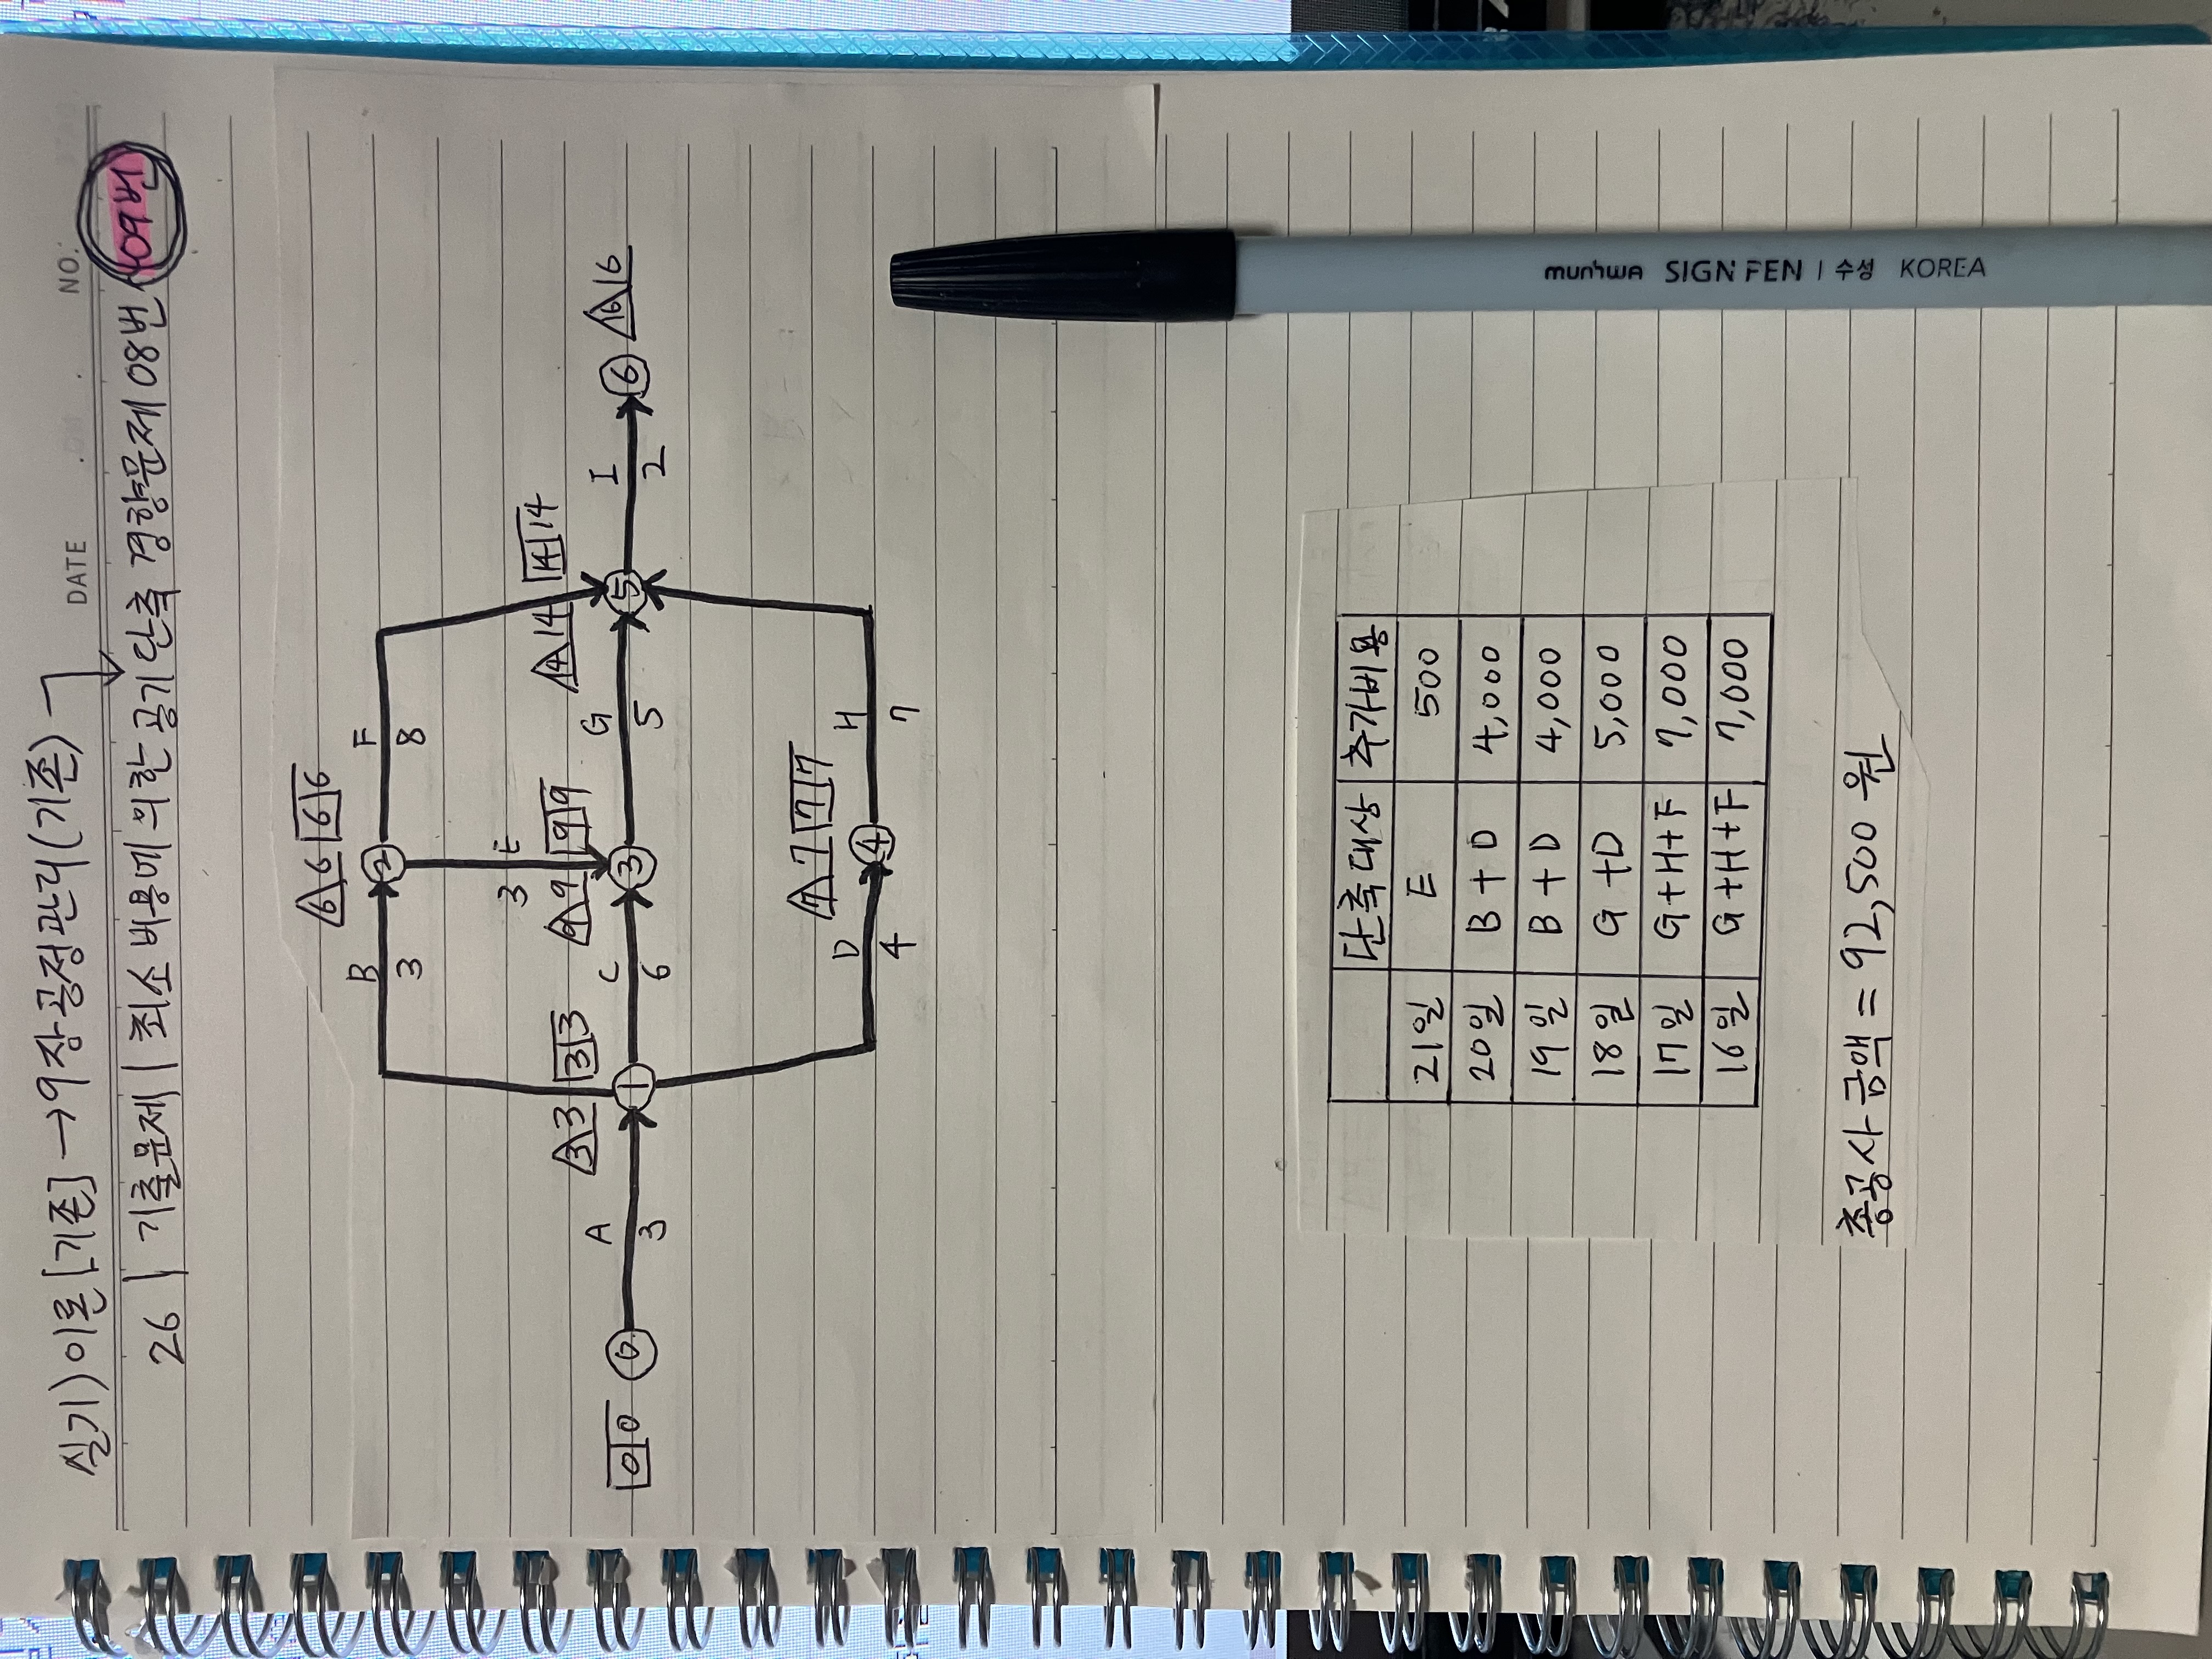 DATE . . NO.
실기) 이론 [기존] → 9장 공정관리 (기존)
26 | 기출문제 | 최소비용에 의한 공기단축 경향문제 08번, 09번
6 6 6 6
B 3
F 8
E 3
0 0
0
A 3
3 3 3 3
1
C 6
9 9 9 9
2
3
G 5
14 14 14 14
5
I 2
6
16 16
D 4
7 7 7 7
4
H 7
munhwa SIGN PEN | 수성 KOREA
단축대상 추가비용
21일 E 500
20일 B+D 4,000
19일 B+D 4,000
18일 G+D 5,000
17일 G+H+F 7,000
16일 G+H+F 7,000
총공사금액 = 92,500 원